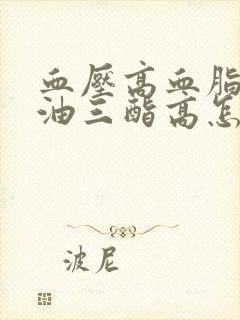 血壓高血脂
油三酯高怎
波尼